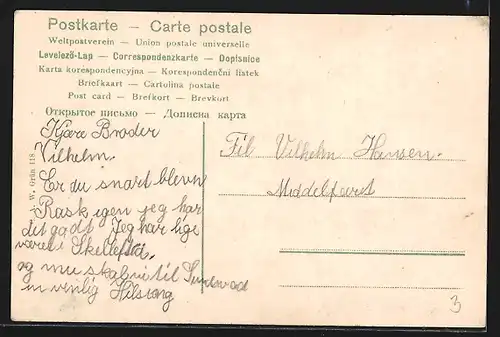 Postkarte — Carte postale
Weltpostverein — Union postale universelle
Levelező-Lap — Correspondenzkarte — Dopisnice
Karta korespondencyjna — Korespondenční lístek
Briefkaart — Cartolina postale
Post card — Brefkort — Brevkort
Открытое письмо — Дописна карта
Kjære Broder
Vilhelm.
Er du snart bleven
Rask igen jeg har
det godt Jeg har lige
været i Skellefteå.
og nu skal vi til Sundsvad
en venlig Hilsen
Til Vilhelm Hansen.
Middelfart
W. Grün 118
3